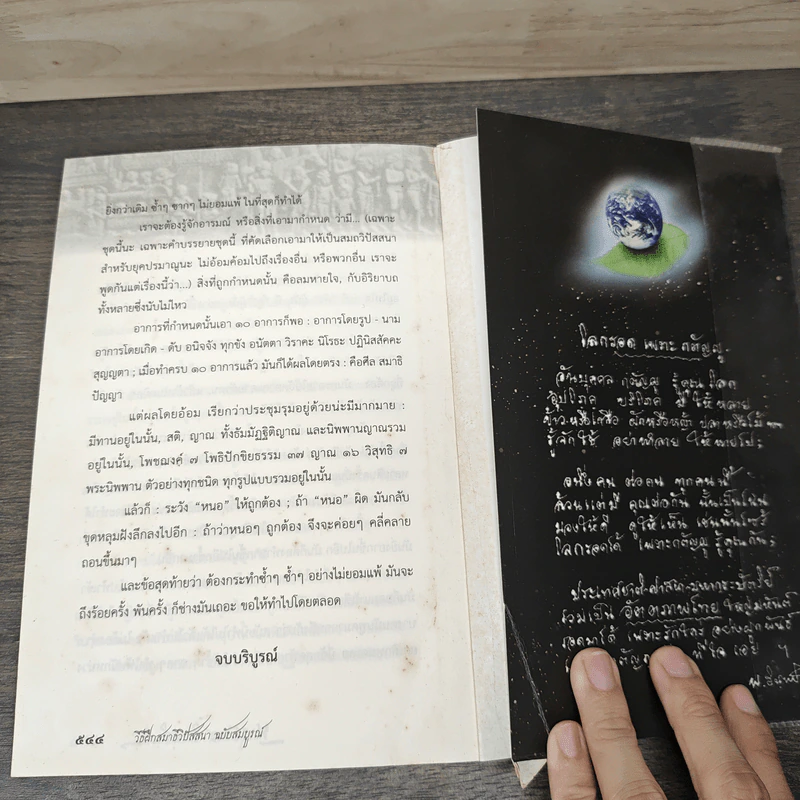 ยิ่งกว่าเดิม ซ้ำๆ ซากๆ ไม่ยอมแพ้ ในที่สุดก็ทำได้
เราจะต้องรู้จักอารมณ์ หรือสิ่งที่เอามากำหนด ว่ามี... (เฉพาะ
ชุดนี้นะ เฉพาะคำบรรยายชุดนี้ ที่คัดเลือกเอามาให้เป็นสมถวิปัสสนา
สำหรับยุคปรมาณูนะ ไม่อ้อมค้อมไปถึงเรื่องอื่น หรือพวกอื่น เราจะ
พูดกันแต่เรื่องนี้ว่า...) สิ่งที่ถูกกำหนดนั้น คือลมหายใจ, กับอิริยาบถ
ทั้งหลายซึ่งนับไม่ไหว
อาการที่กำหนดนั้นเอา ๑๐ อาการก็พอ : อาการโดยรูป - นาม
อาการโดยเกิด - ดับ อนิจจัง ทุกขัง อนัตตา วิราคะ นิโรธะ ปฏินิสสัคคะ
สุญญตา ; เมื่อทำครบ ๑๐ อาการแล้ว มันก็ได้ผลโดยตรง : คือศีล สมาธิ
ปัญญา
แต่ผลโดยอ้อม เรียกว่าประชุมรุมอยู่ด้วยน่ะมีมากมาย :
มีทานอยู่ในนั้น, สติ, ญาณ ทั้งธัมมัฏฐิติญาณ และนิพพานญาณรวม
อยู่ในนั้น, โพชฌงค์ ๗ โพธิปักขิยธรรม ๓๗ ญาณ ๑๖ วิสุทธิ ๗
พระนิพพาน ตัวอย่างทุกชนิด ทุกรูปแบบรวมอยู่ในนั้น
แล้วก็ : ระวัง “หนอ” ให้ถูกต้อง ; ถ้า “หนอ” ผิด มันกลับ
ขุดหลุมฝังลึกลงไปอีก : ถ้าว่าหนอๆ ถูกต้อง จึงจะค่อยๆ คลี่คลาย
ถอนขึ้นมาๆ
และข้อสุดท้ายว่า ต้องกระทำซ้ำๆ ซ้ำๆ อย่างไม่ยอมแพ้ มันจะ
ถึงร้อยครั้ง พันครั้ง ก็ช่างมันเถอะ ขอให้ทำไปโดยตลอด
จบบริบูรณ์
๕๔๔ วิธีฝึกสมาธิวิปัสสนา ฉบับสมบูรณ์
โลกรอด เพราะ กตัญญู
อันบุคคล กตัญญู รู้คุณโลก
อุปโภค บริโภค มีให้หลาย
ข้าวหรือเกลือ ผักหรือหญ้า ปลาหรือไม้
รู้จักใช้ อย่าทำลาย ให้หายไป
อนึ่ง คน ต่อคน ทุกคนนี้
ล้วนแต่มี คุณต่อกัน นั้นเป็นไฉน
มองให้ดี ดูให้เห็น เช่นนั้นไซร้
โลกรอดได้ เพราะกตัญญู รู้คุณกัน